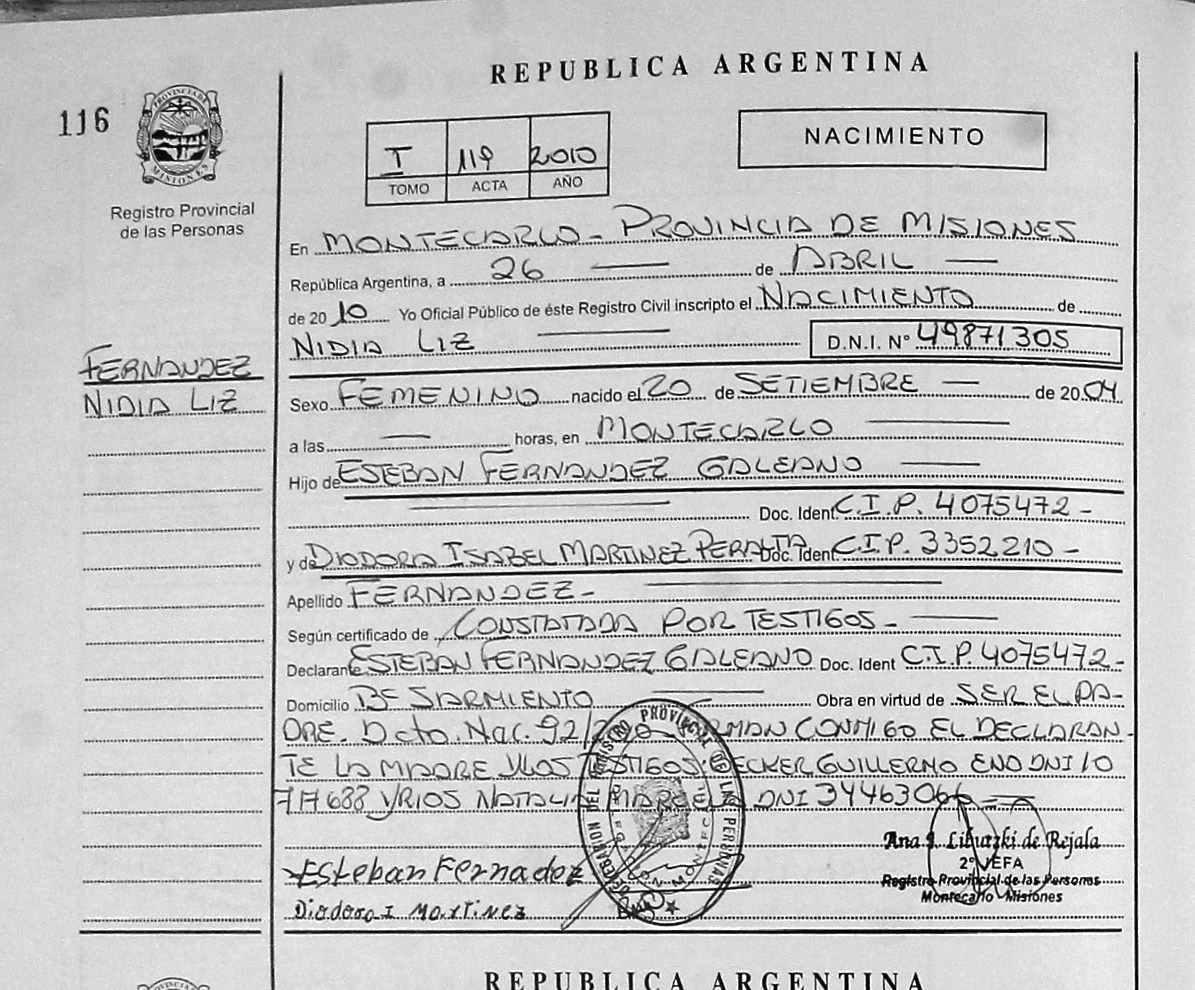 REPUBLICA ARGENTINA
116
PROVINCIA DE MISIONES
Registro Provincial
de las Personas
I 119 2010
TOMO ACTA AÑO
NACIMIENTO
En MONTECARLO - PROVINCIA DE MISIONES
República Argentina, a 26 de ABRIL
de 2010 Yo Oficial Público de éste Registro Civil inscripto el NACIMIENTO de
NIDIA LIZ D.N.I. Nº 49871305
FERNANDEZ
NIDIA LIZ
Sexo FEMENINO nacido el 20 de SETIEMBRE de 2004
a las horas, en MONTECARLO
Hijo de ESTEBAN FERNANDEZ GALEANO
Doc. Ident C.I.P. 4075472 -
y de DIODORA ISABEL MARTINEZ PERALTA Doc. Ident C.I.P. 3352210 -
Apellido FERNANDEZ -
Según certificado de CONSTATADA POR TESTIGOS -
Declarante ESTEBAN FERNANDEZ GALEANO Doc. Ident C.I.P. 4075472 -
Domicilio Bº SARMIENTO Obra en virtud de SER EL PA-
DRE. Dcto. Nac. 92/ CONMIGO EL DECLARAN-
TE LA MADRE Y LOS TESTIGOS: BECKER GUILLERMO ENO DNI 10
717688 Y RIOS NATALIA DNI 34463066
Esteban Fernadez
Diodora I Martinez
Ana de Rejala
2º JEFA
Registro Provincial de las Personas
Montecarlo Misiones
REPUBLICA ARGENTINA